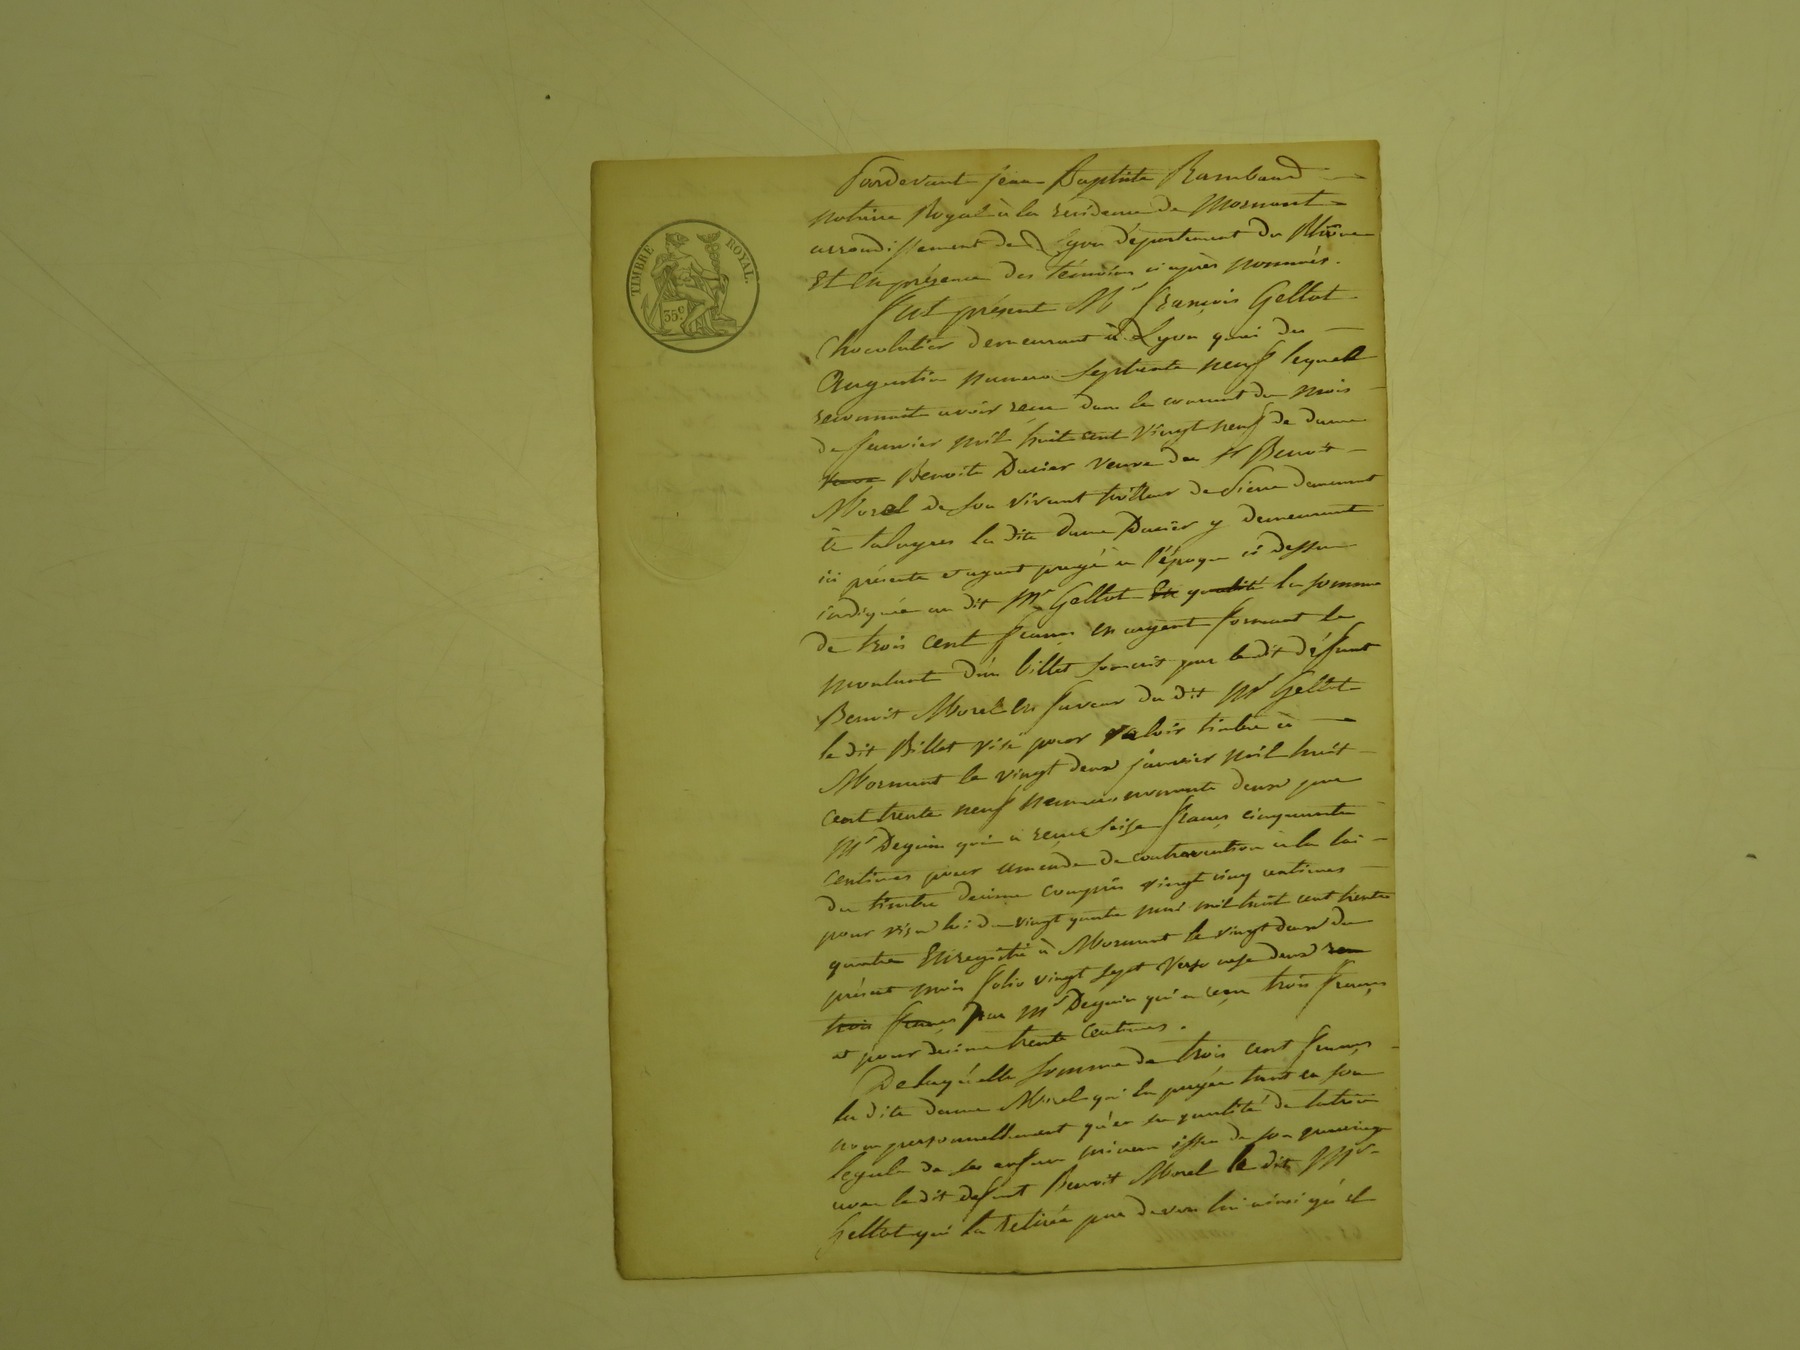 TIMBRE ROYAL.
35c
Pardevant jean Baptiste Rambaud
notaire Royal à la residence de Mornant
arrondissement de Lyon département du Rhône
Et en présence des témoins ci après nommés.
fut présent Mr françois Gellot
Chocolatier demeurant à Lyon quai des
Augustin numero septante neuf lequel
reconnait avoir reçu dans le courant du mois
de janvier mil huit cent vingt neuf de dame
Benoite Ducier veuve de sr Benoit
Morel de son vivant tailleur de pierre demeurant
à taluyers la dite dame Ducier y demeurant
ici présente et ayant payé à l'époque ci dessus
indiquée au dit Mr Gellot En qualité la somme
de trois cent francs en argent formant le
montant d'un billet souscrit par le dit défunt
Benoit Morel en faveur du dit Mr Gellot
le dit Billet visé pour valoir timbre à
Mornant le vingt deux janvier mil huit
cent trente neuf numero nonante deux par
Mr Deguin qui a reçu seise francs cinquante
centimes pour amende de contravention à la loi
du timbre decime compris vingt cinq centimes
pour visa loi du vingt quatre mai mil huit cent trente
quatre Enregistré à Mornant le vingt deux du
présent mois folio vingt sept verso case deux reçu
trois francs par Mr Deguin qui a reçu trois francs
et pour decime trente centimes.
De laquelle somme de trois cent francs
la dite dame Morel qui la payée tant en son
nom personnellement qu'en sa qualité de tutrice
legale de ses enfans mineurs issus de son mariage
avec le dit defunt Benoit Morel le dit Mr
Gellot qui la retirée par devers lui ainsi qu'il